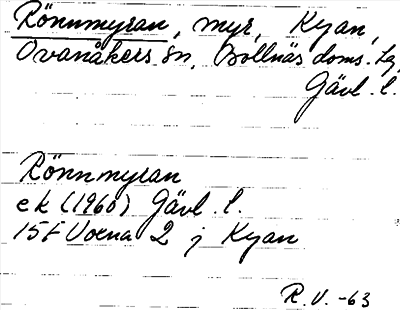 Rönnmyran, myr, Kyan,
Ovanåkers sn, Bollnäs doms. lg,
Gävl. l.
Rönnmyran
ek (1960) Gävl. l.
15F Voxna 2 j Kyan
R. V. -63